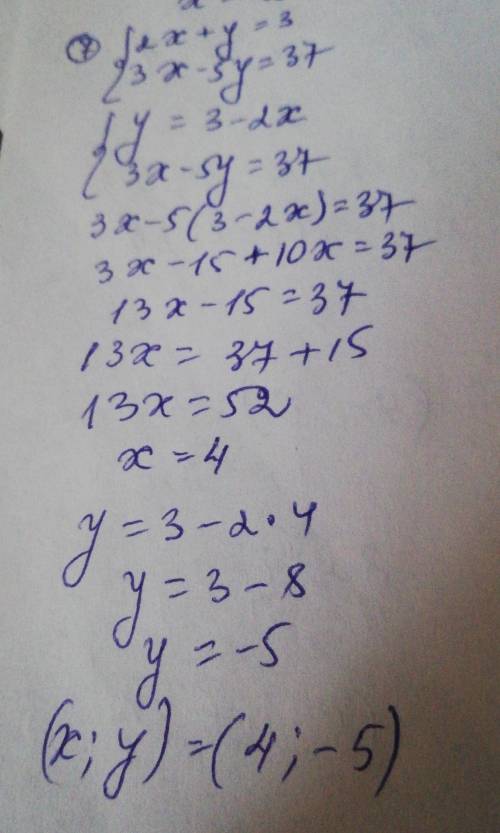 7) { 2x + y = 3
3x - 5y = 37
{ y = 3 - 2x
3x - 5y = 37
3x - 5(3 - 2x) = 37
3x - 15 + 10x = 37
13x - 15 = 37
13x = 37 + 15
13x = 52
x = 4
y = 3 - 2 · 4
y = 3 - 8
y = -5
(x; y) = (4; -5)